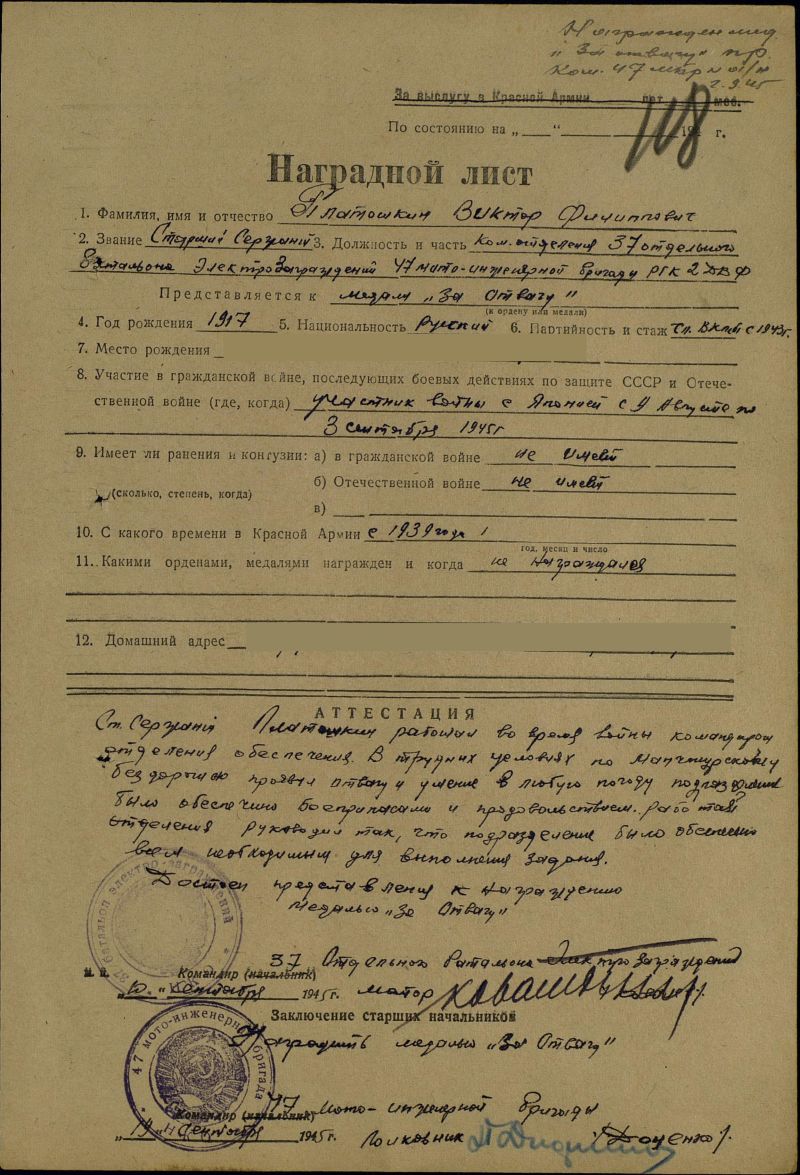 Награжден мед.
"За отвагу" пр.
Ком. 47
2.9.45
За выслугу в Красной Армии лет мес.
По состоянию на „ “ 194 г.
108
Наградной лист
1. Фамилия, имя и отчество Платошкин Виктор Филиппович
2. Звание Старший Сержант 3. Должность и часть Ком. отделения 37 отдельного
Батальона Электрозаграждений 47 мото-инженерной бригады РГК 2 ДВФ
Представляется к медали „За Отвагу"
(к ордену или медали)
4. Год рождения 1917 5. Национальность Русский 6. Партийность и стаж с 1943г.
7. Место рождения
8. Участие в гражданской войне, последующих боевых действиях по защите СССР и Отече-
ственной войне (где, когда) участник войны с Японией с 9 Августа по
3 сентября 1945г
9. Имеет ли ранения и контузии: а) в гражданской войне не имеет
б) Отечественной войне не имеет
(сколько, степень, когда)
в)
10. С какого времени в Красной Армии с 1939 года
год, месяц и число
11. Какими орденами, медалями награжден и когда не награждался
12. Домашний адрес
АТТЕСТАЦИЯ
Ст. Сержант Платошкин работал во время войны командиром
отделения обеспечения. В трудных условиях по Манчжурскому
бездорожью проявил отвагу и умение в любую погоду подразделение
было обеспечено боеприпасами и продовольствием. Работой
отделения руководил так, что подразделение было обеспечено
всем необходимым для выполнения задания.
Достоин представления к награждению
медалью „За Отвагу"
37 батальон электро-заграждений
37 Отдельного батальона электрозаграждений
М. П. Командир (начальник)
„10" сентября 1945г. майор
Заключение старших начальников
Наградить медалью „За Отвагу"
47 мото-инженерн бригада
47 мото-инженерной бригады
Командир (начальник)
„19" сентября 1945г. полковник /Доценко/.